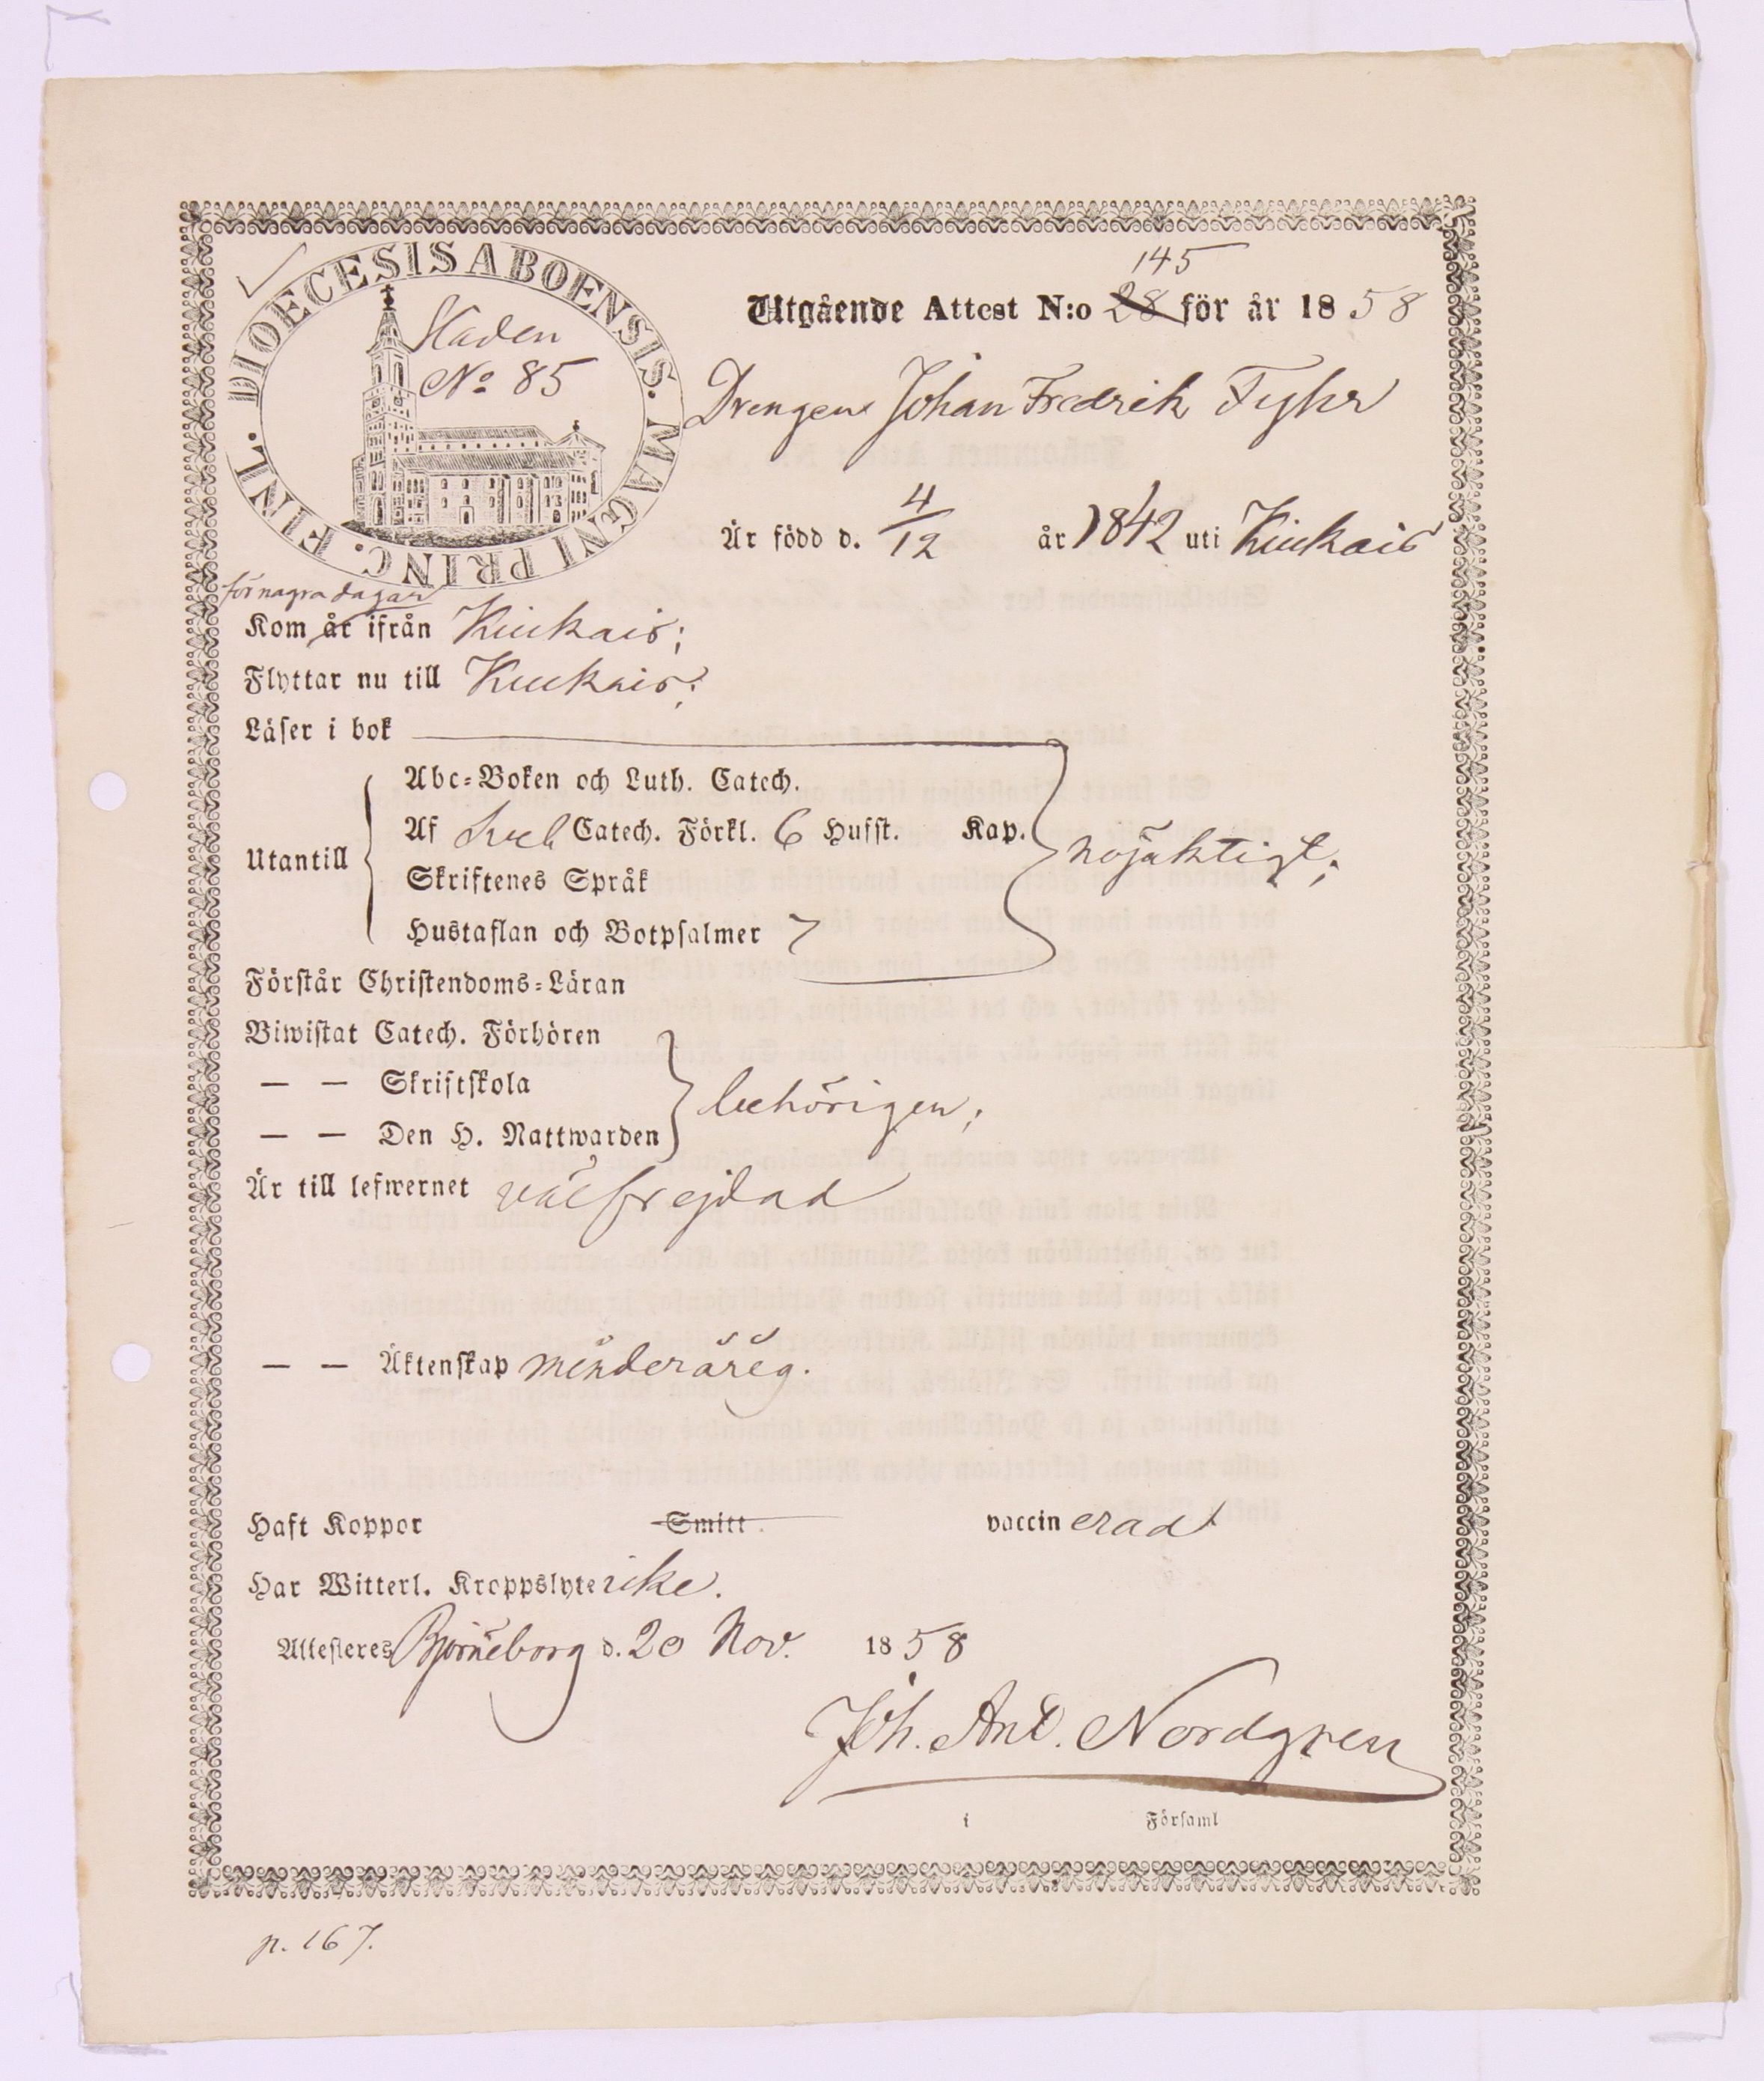 DIOECESIS ABOENSIS. MAGNI PRINC. FINL.
Staden
No 85
145
Utgående Attest N:o 28 för år 1858
Drengen Johan Fredrik Fyhr
Är född d. 4/12 år 1842 uti Kiukais
för nagra dagar
Kom år ifrån Kiukais;
Flyttar nu till Kiukais;
Läser i bok
Utantill
Abc-Boken och Luth. Catech.
Af Sveb Catech. Förkl. 6 Hufst. Kap.
Skriftenes Språk
Hustaflan och Botpsalmer 7
nöjaktigt;
Förstår Christendoms-Läran
Biwistat Catech. Förhören
— — Skriftskola
— — Den H. Nattwarden
behörigen;
Är till lefwernet välfrejdad
— — Äktenskap minderårig.
Haft Koppor Smitt. vaccinerad
Har Witterl. Kroppslyte icke.
Attesteres Björneborg d. 20 Nov. 1858
Joh. And. Nordgren
i Församl
p. 167.